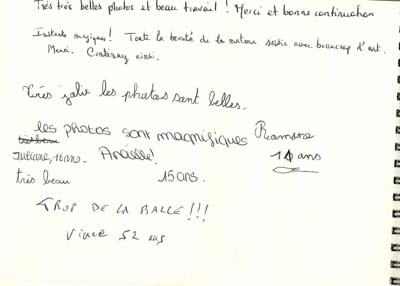 Très très belles photos et beau travail ! Merci et bonne continuation
Instants magiques ! Toute la beauté de la nature saisie avec beaucoup d'art.
Merci. Continuez ainsi.
Très jolie les photos sont belles.
les photos sont magnifiques Romane
Juliane, 16 ans. Anaëlle! 11 ans
très beau 15 ans.
TROP DE LA BALLE !!!
Vince 52 ans